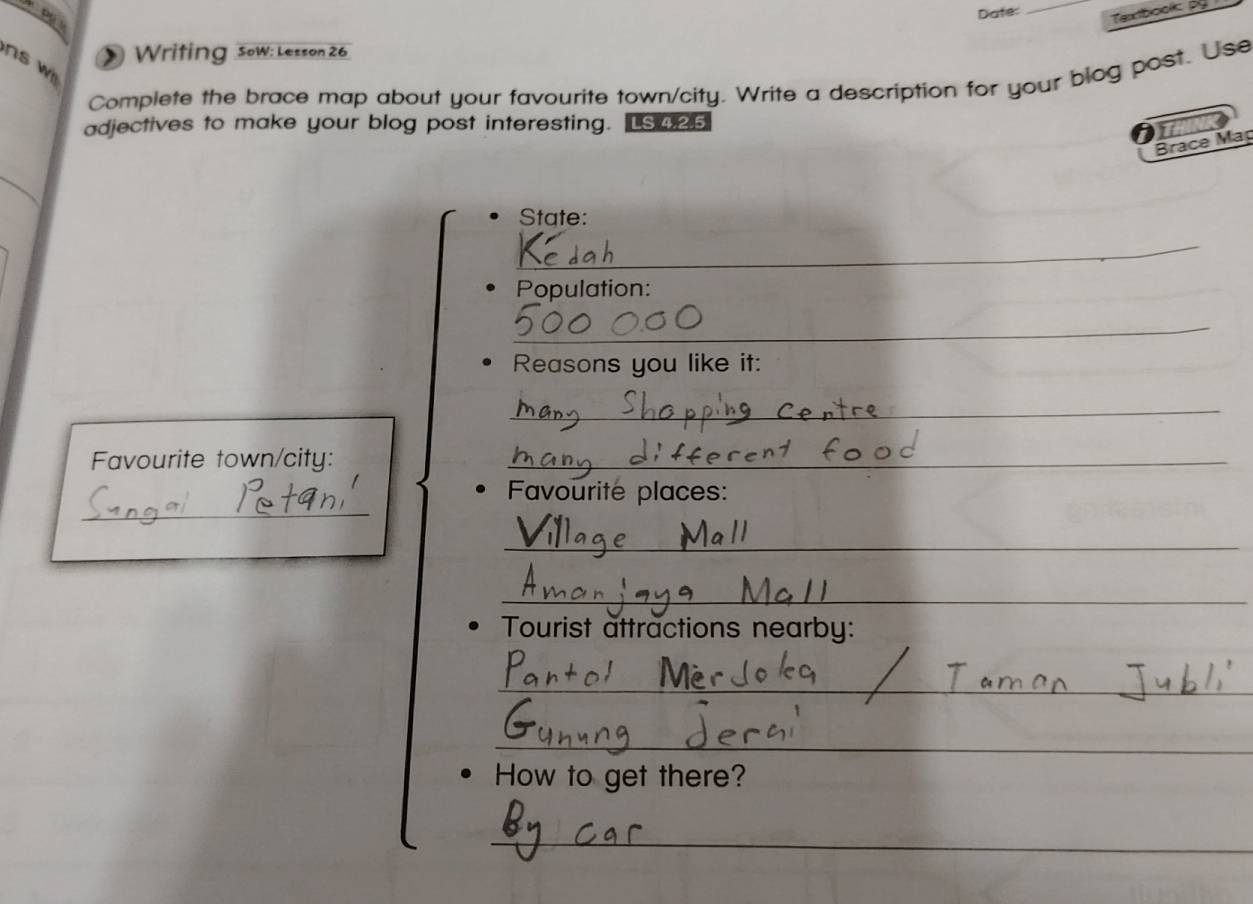 Date:
Textbook: pg
ns wi
Writing SoW: Lesson 26
Complete the brace map about your favourite town/city. Write a description for your blog post. Use
adjectives to make your blog post interesting. LS 4.2.5
i THINK
Brace Map
• State:
Kedah
• Population:
500 000
• Reasons you like it:
many Shopping centre
many different food
Favourite town/city:
Sungai Petani
• Favourite places:
Village Mall
Amanjaya Mall
• Tourist attractions nearby:
Pantai Merdeka / Taman Jubli
Gunung Jerai
• How to get there?
By car